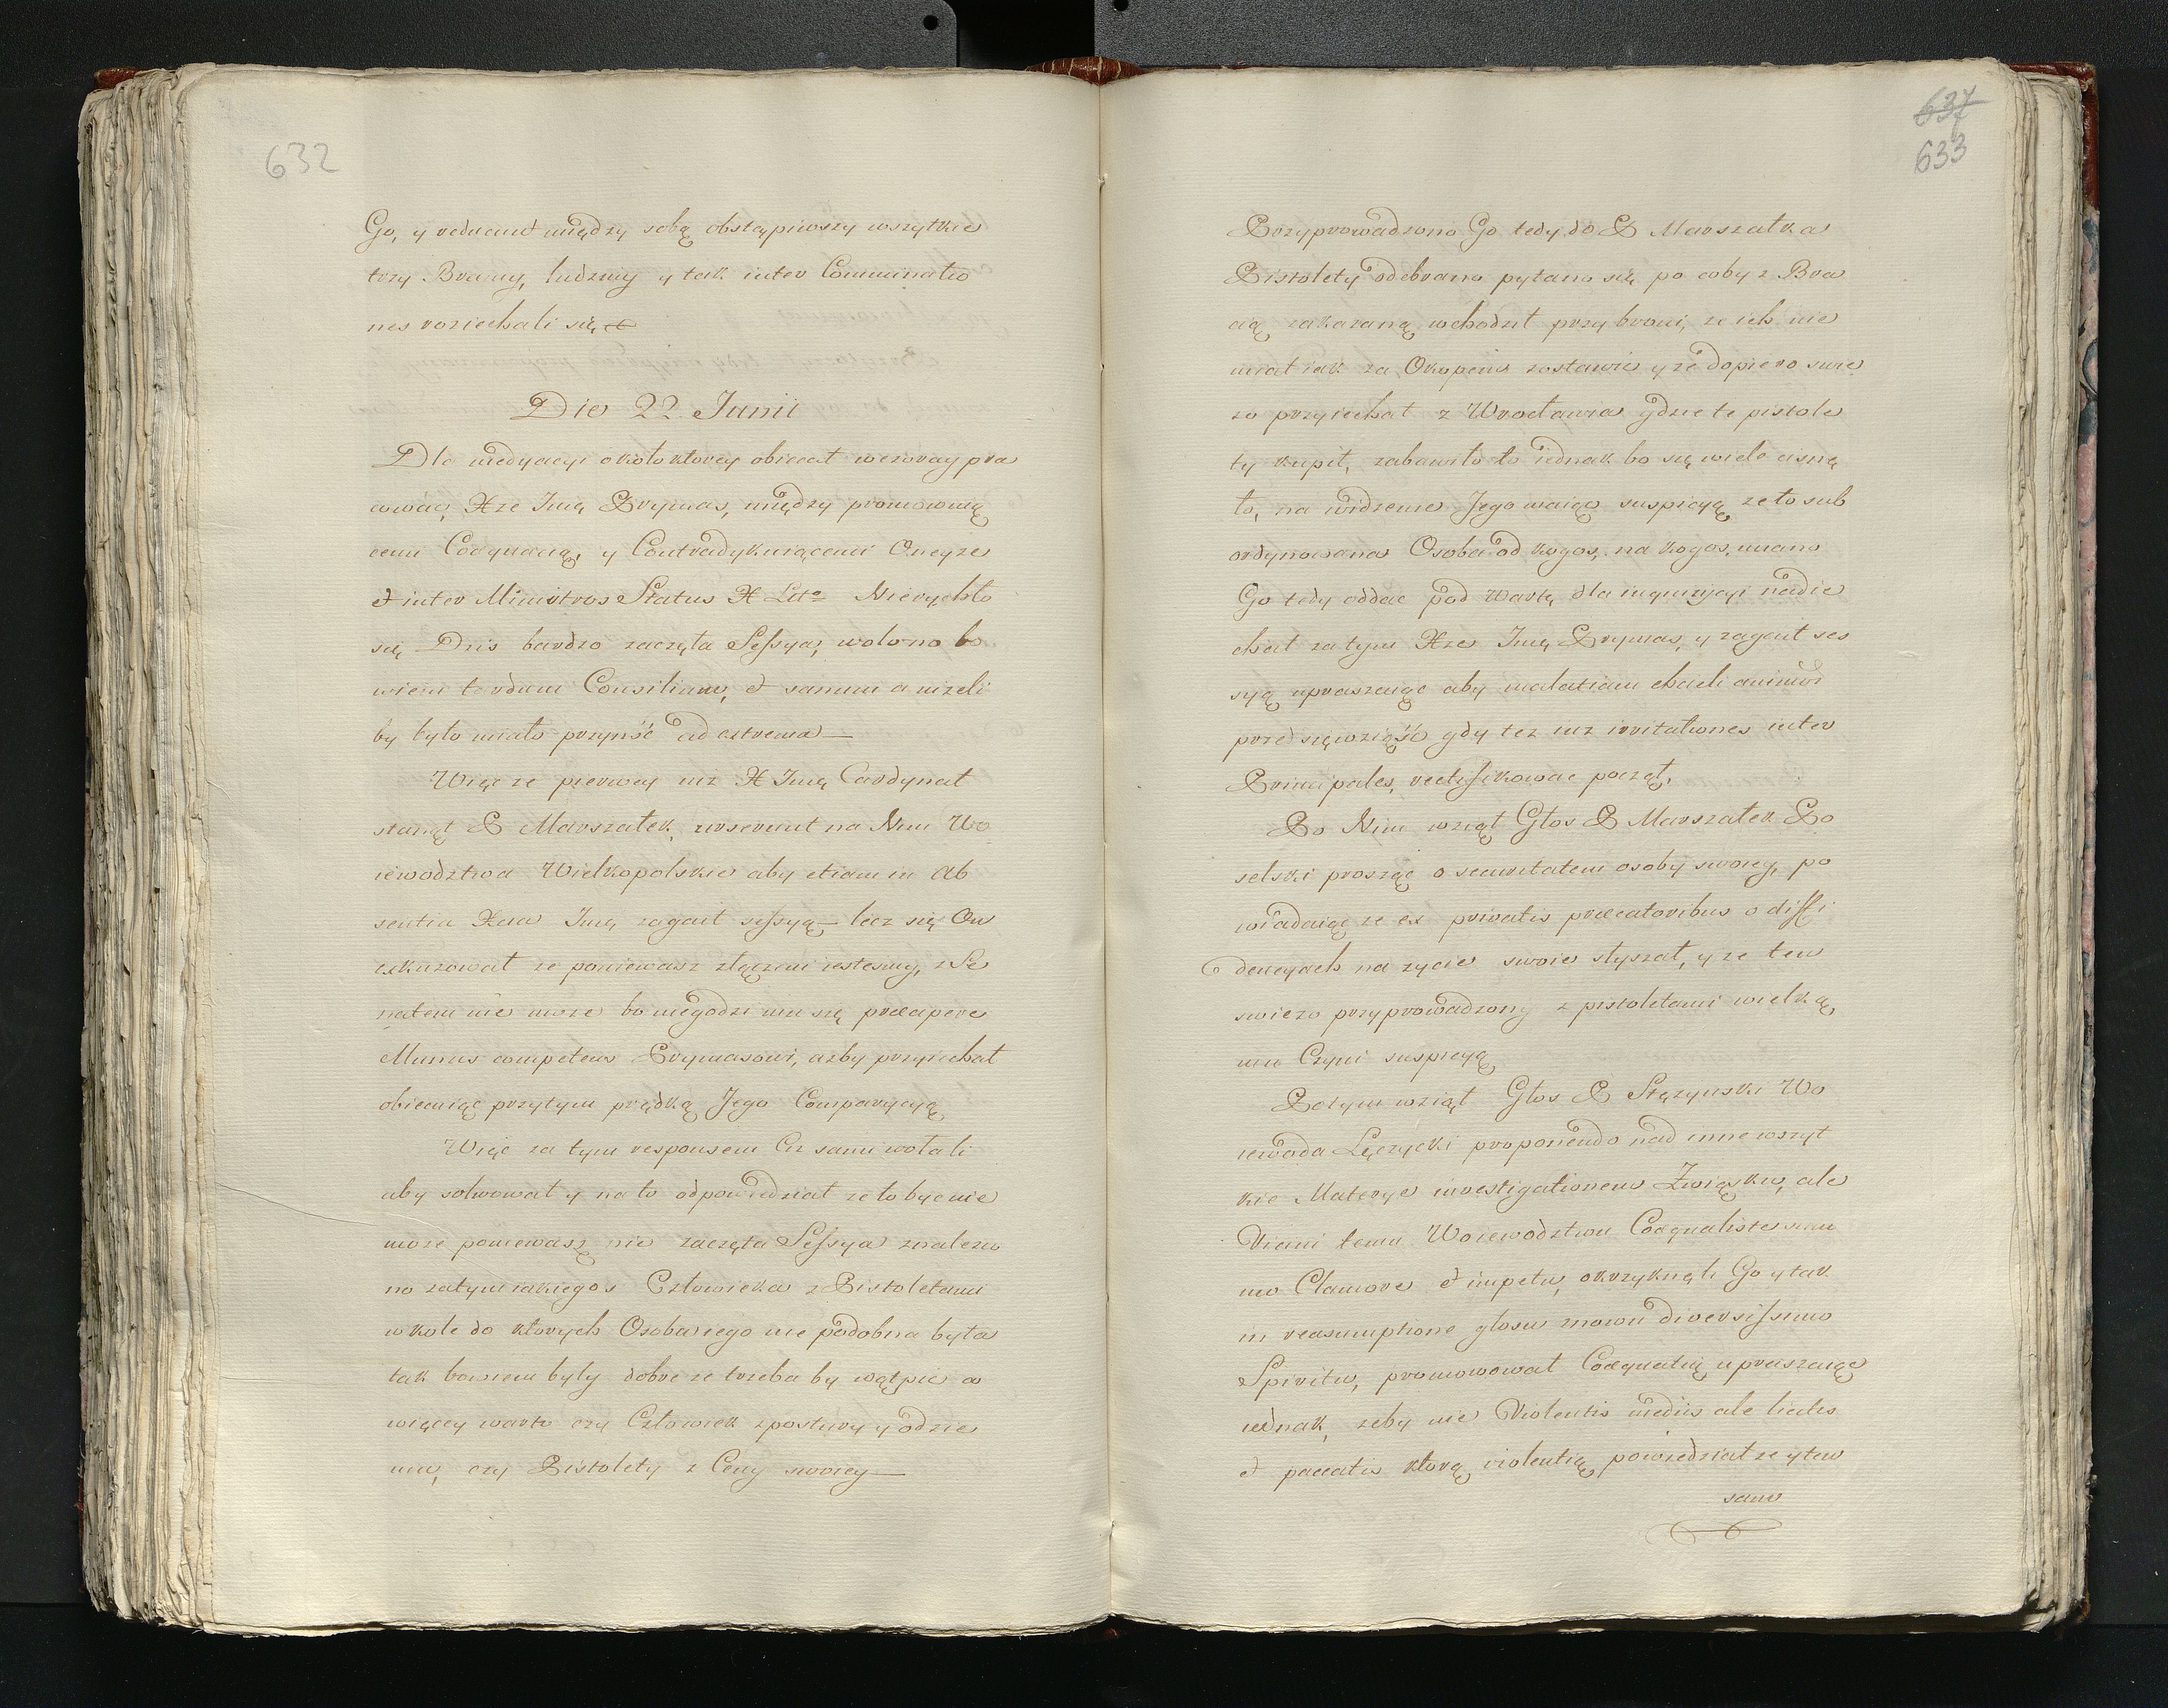 632
Go, y reducunt między sobą obstąpiwszy wszytkie
trzy Bramy, ludzmy y tak inter Comminatio
nes roziechali się
Die 22 Junii
Dla medyacyi około ktorey obiecał wczoray pra
cowac, Xze Jmę Prymas, między promowuią
cemi Coæquacią, y Contradykuiącemi Oneyze
et inter Ministros Status X Litt Nierychło
się Dzis bardzo zaczęła Sessya, wolono bo
wiem tardum Consilium, et sanum a nizeli
by było miało przyniść ad extrema
Więc ze pierwey niz X Jmę Cardynał
stanął P Marszałek, urserunt na Nim Wo
iewodztwa Wielkopolskie aby etiam in Ab
sentia Xcia Jmę zagaił sessyą lecz się On
exkuzował ze poniewasz złączeni iestesmy, z Se
natem nie moze bo niegodzi mu się præcipere
Munus competens Prymasowi, azby przyiechał
obiecuiąc przytym prędką Jego Comparycyą
Więc za tym responsem Ciz sami wołali
aby solwował y na to odpowiedział ze to byc nie
moze poniewasz nie zaczęta Sessya znalezio
no zatym iakiegos Człowieka z Pistoletami
w kole do ktorych Osoba iego nie podobna była
tak bowiem były dobre ze trzeba by wątpic co
więcey warto czy Człowiek z postury y odzie
nia, czy Pistolety z Ceny swoiey
637
633
Przyprowadzono Go tedy do P Marszałka
Pistolety odebrano pytano się po coby z Bro
nią zakazaną wchodził przy broni, ze ich nie
miał iak za Okopem zostawic y ze dopiero swie
zo przyiechał z Wrocławia gdzie te pistole
ty kupił, zabawiło to iednak bo się wiele cisnę
ło, na widzenie Jego maiąc suspicyą ze to sub
ordynowana Osoba od kogos, na kogos, miano
Go tedy oddac pod Wartę dla inquizycyi nadie
chał zatym Xze Jmę Prymas, y zagaił ses
syą upraszaiąc aby malatiam chcieli animi
przedsięwziąść gdy tez iuz irritationes inter
Principales, rectifikowac począł,
Po Nim wziął Głos P Marszałek Po
selski prosząc o securitatem osoby swoiey, po
wiadaiąc ze ex privatis præcatoribus o dissi
dencyach na zycie swoie słyszał, y ze ten
swiezo przyprowadzony z pistoletami wielką
mu Czyni suspicyą
Potym wziął Głos P Stęzynski Wo
iewoda Łęczycki proponendo nad inne wszyt
kie Materye investigationem Związku, ale
Przeciwni temu Woiewodztwa Coæqualistæ sum
mo Clamore et impetu, okrzyknęli Go y tak
in reasumptione głosu znowu diversissimo
Spiritu, promowował Coæquatią upraszaiąc
iednak, zeby nie Violentis mediis ale licitis
et paccatis ktorą violentią powiedział ze y ten
sam